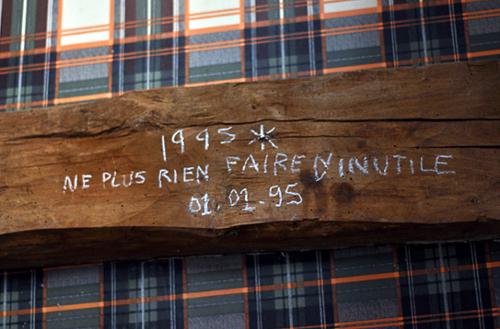 1995 *
NE PLUS RIEN FAIRE D'INUTILE
01.01.95